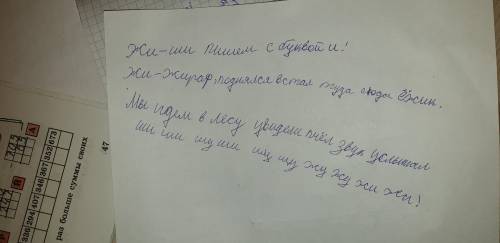 Жи-ши пишем с буквой и!
Жи-жираф, поднялся встал туда сюда ёжик.
Мы идем в лесу увидели пчёл звук услышали
ши ши шу ши щ щу жу жу жи жи!
А
В
раз больше суммы своих
47
336 294 407 346 367 352 673